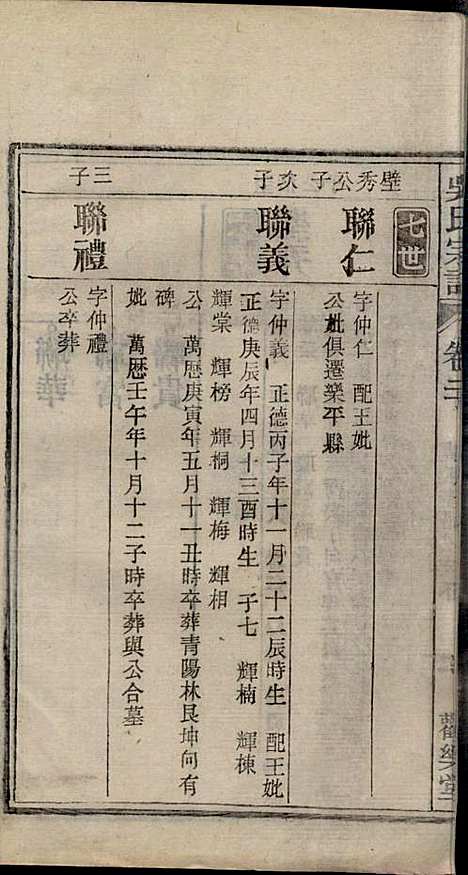 吳氏宗譜
卷二
觀樂堂
七世
璧秀公子
次子
三子
聯仁
字仲仁 配王妣
公妣俱遷樂平縣
聯義
字仲義 正德丙子年十一月二十二辰時生 配王妣
正德庚辰年四月十三酉時生 子七 輝楠 輝棟
輝棠 輝榜 輝桐 輝梅 輝相
公 萬歷庚寅年五月十一丑時卒葬青陽林艮坤向有
碑
妣 萬歷壬午年十月十二子時卒葬與公合墓
聯禮
字仲禮
公卒葬